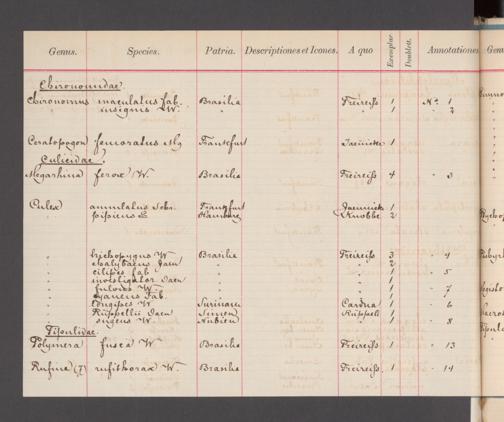 Genus. Species. Patria. Descriptiones et Icones. A quo Exemplar. Doublett. Annotationes
Chironomidae.
Chironomus maculatus Fab. Brasilia Freireiss 1 No. 1
" insignis W. " " 1 " 2
Ceratopogon femoratus Mg Frankfurt Jaennicke 1
Culicidae.
Megarhina ferox W. Brasilia Freireiss 4 " 3
Culex annulatus Schr. Frankfurt Jaennicke 1
" pipiens L Hamburg Knobbe 2
" trichopygus W. Brasilia Freireiss 3 " 4
" Jaen " " 2
" cilipes Fab " " 1 " 5
" Jaen " " 1
" fulvus W. " " 1 " 7
" cyaneus Fab. " " 1
" longipes W Surinam 1 " 6
" Rüppellii Jaen Rüppell 1
" W. Nubien " 1 " 8
Tipulidae.
Polymera fusca W. Brasilia Freireiss 1 " 13
rufithorax W. Brasilia Freireiss 1 " 14